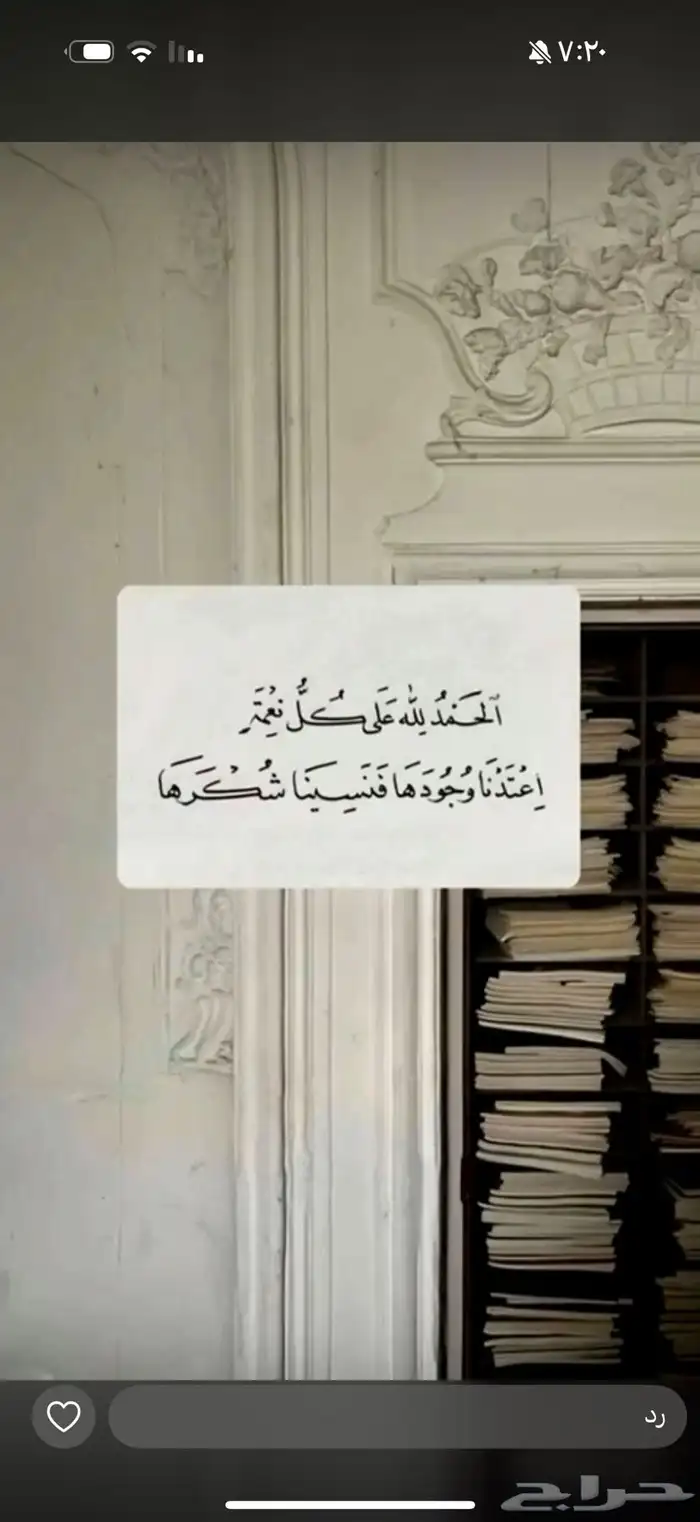 ٧:٢٠
ٱلْحَمْدُ لِلّٰهِ عَلَى كُلِّ نِعْمَةٍ
اِعْتَدْنَا وُجُودَهَا فَنَسِينَا شُكْرَهَا
رد
حراج